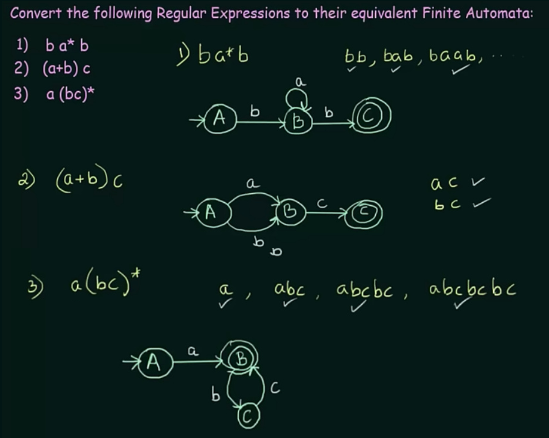 Convert the following Regular Expressions to their equivalent Finite Automata:
1) b a* b
2) (a+b) c
3) a (bc)*
1) ba*b
bb, bab, baab, ...
a
A b B b C
2) (a+b) c
a c ✓
b c ✓
a
A B c C
b
b
3) a(bc)*
a, abc, abcbc, abcbcbc
A a B
b c
C